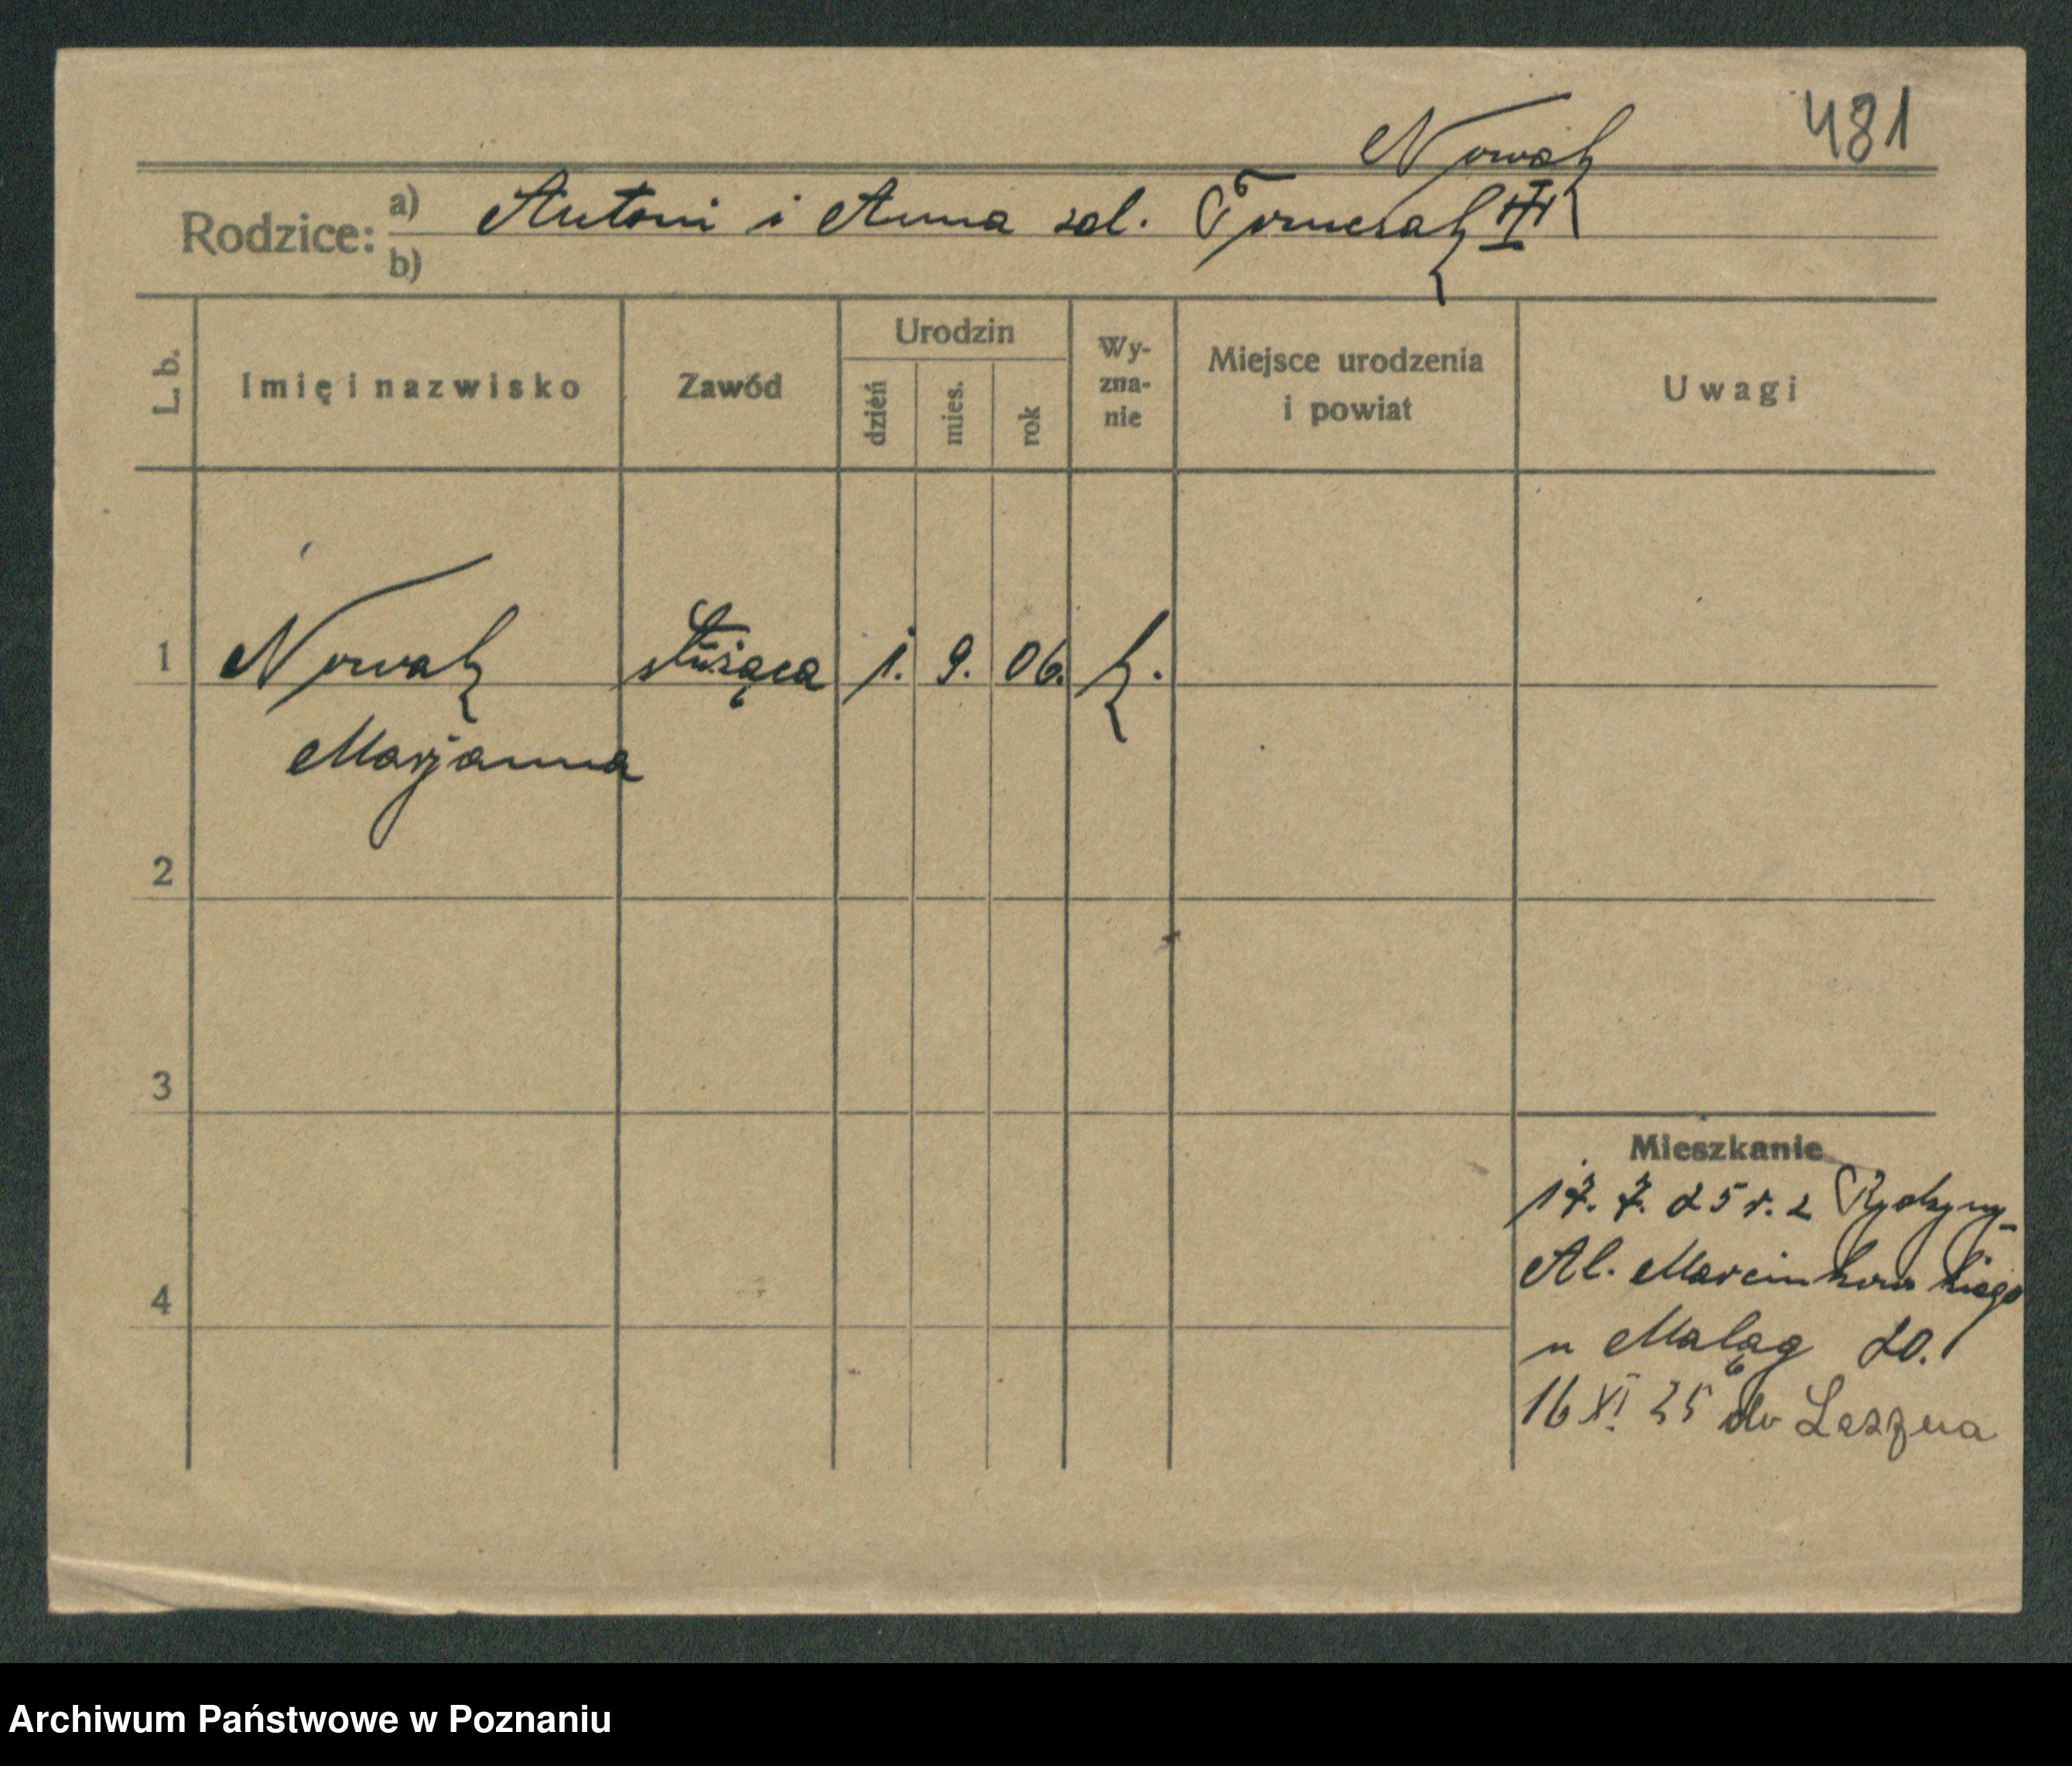 481
Nowak
Rodzice: a) Antoni i Anna zd. III
b)
L. b.
Imię i nazwisko
Zawód
Urodzin
dzień
mies.
rok
Wy-
zna-
nie
Miejsce urodzenia
i powiat
Uwagi
1 Nowak służąca 1. 9. 06. k.
Marjanna
2
3
4
Mieszkanie
17. 7. 25 r. z Rydzyny
Al. Marcinkowskiego
u 20.
16 XI 25 do Leszna
Archiwum Państwowe w Poznaniu